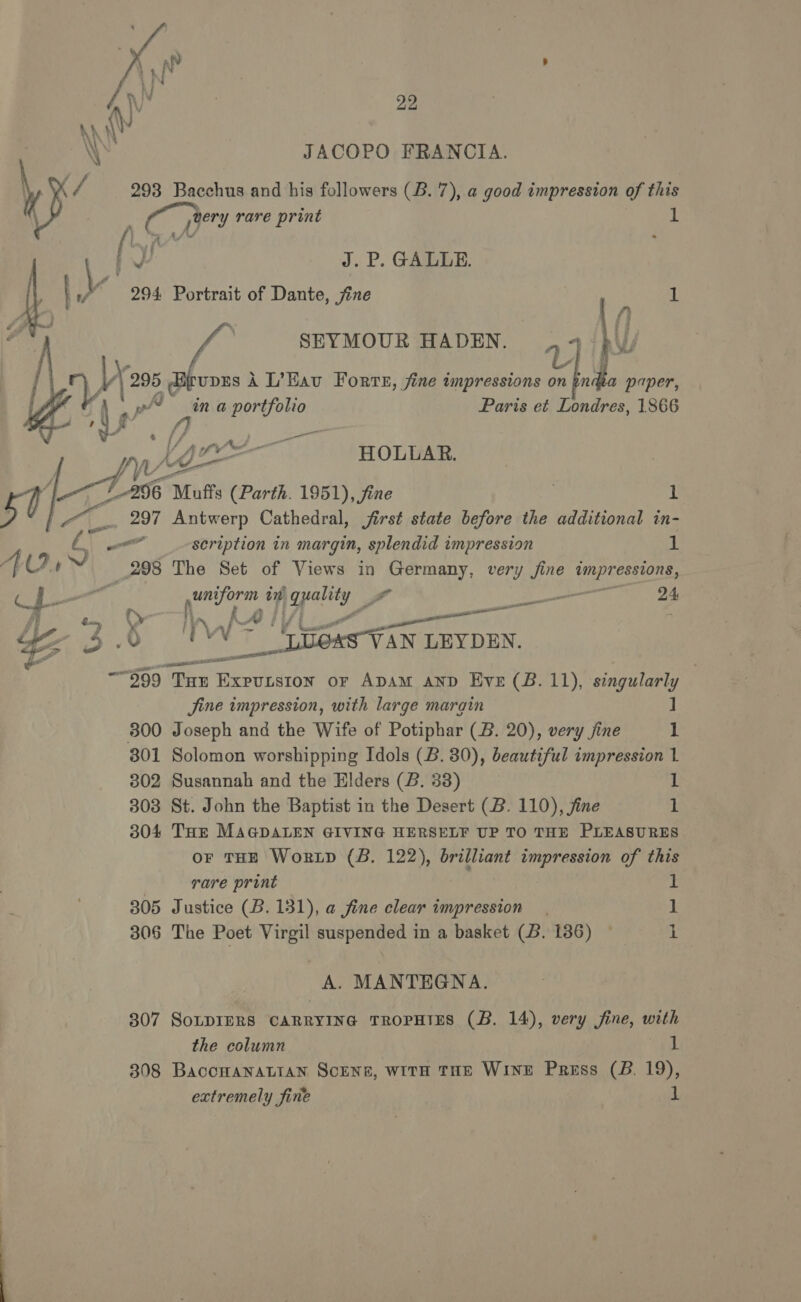 22
JACOPO FRANCIA.
293 Bacchus and his followers (B. 7), a good impression of this
very rare print 1
J. P. GALLE.
294 Portrait of Dante, fine 1
SEYMOUR HADEN.
295 ETUDES À L'EAU FORTE, fine impressions on India paper,
in a portfolio Paris et Londres, 1866
HOLLAR.
296 Muffs (Parth. 1951), fine 1
297 Antwerp Cathedral, first state before the additional in-
scription in margin, splendid impression 1
298 The Set of Views in Germany, very fine impressions,
uniform in quality 24
LUCAS VAN LEYDEN.
299 THE EXPULSION OF ADAM AND EVE (B. 11), singularly
fine impression, with large margin 1
300 Joseph and the Wife of Potiphar (B. 20), very fine 1
301 Solomon worshipping Idols (B. 30), beautiful impression 1
302 Susannah and the Elders (B. 33) 1
303 St. John the Baptist in the Desert (B. 110), fine 1
304 THE MAGDALEN GIVING HERSELF UP TO THE PLEASURES
OF THE WORLD (B. 122), brilliant impression of this
rare print 1
305 Justice (B. 131), a fine clear impression 1
306 The Poet Virgil suspended in a basket (B. 136) 1
A. MANTEGNA.
307 SOLDIERS CARRYING TROPHIES (B. 14), very fine, with
the column 1
308 BACCHANALIAN SCENE, WITH THE WINE PRESS (B. 19),
extremely fine 1